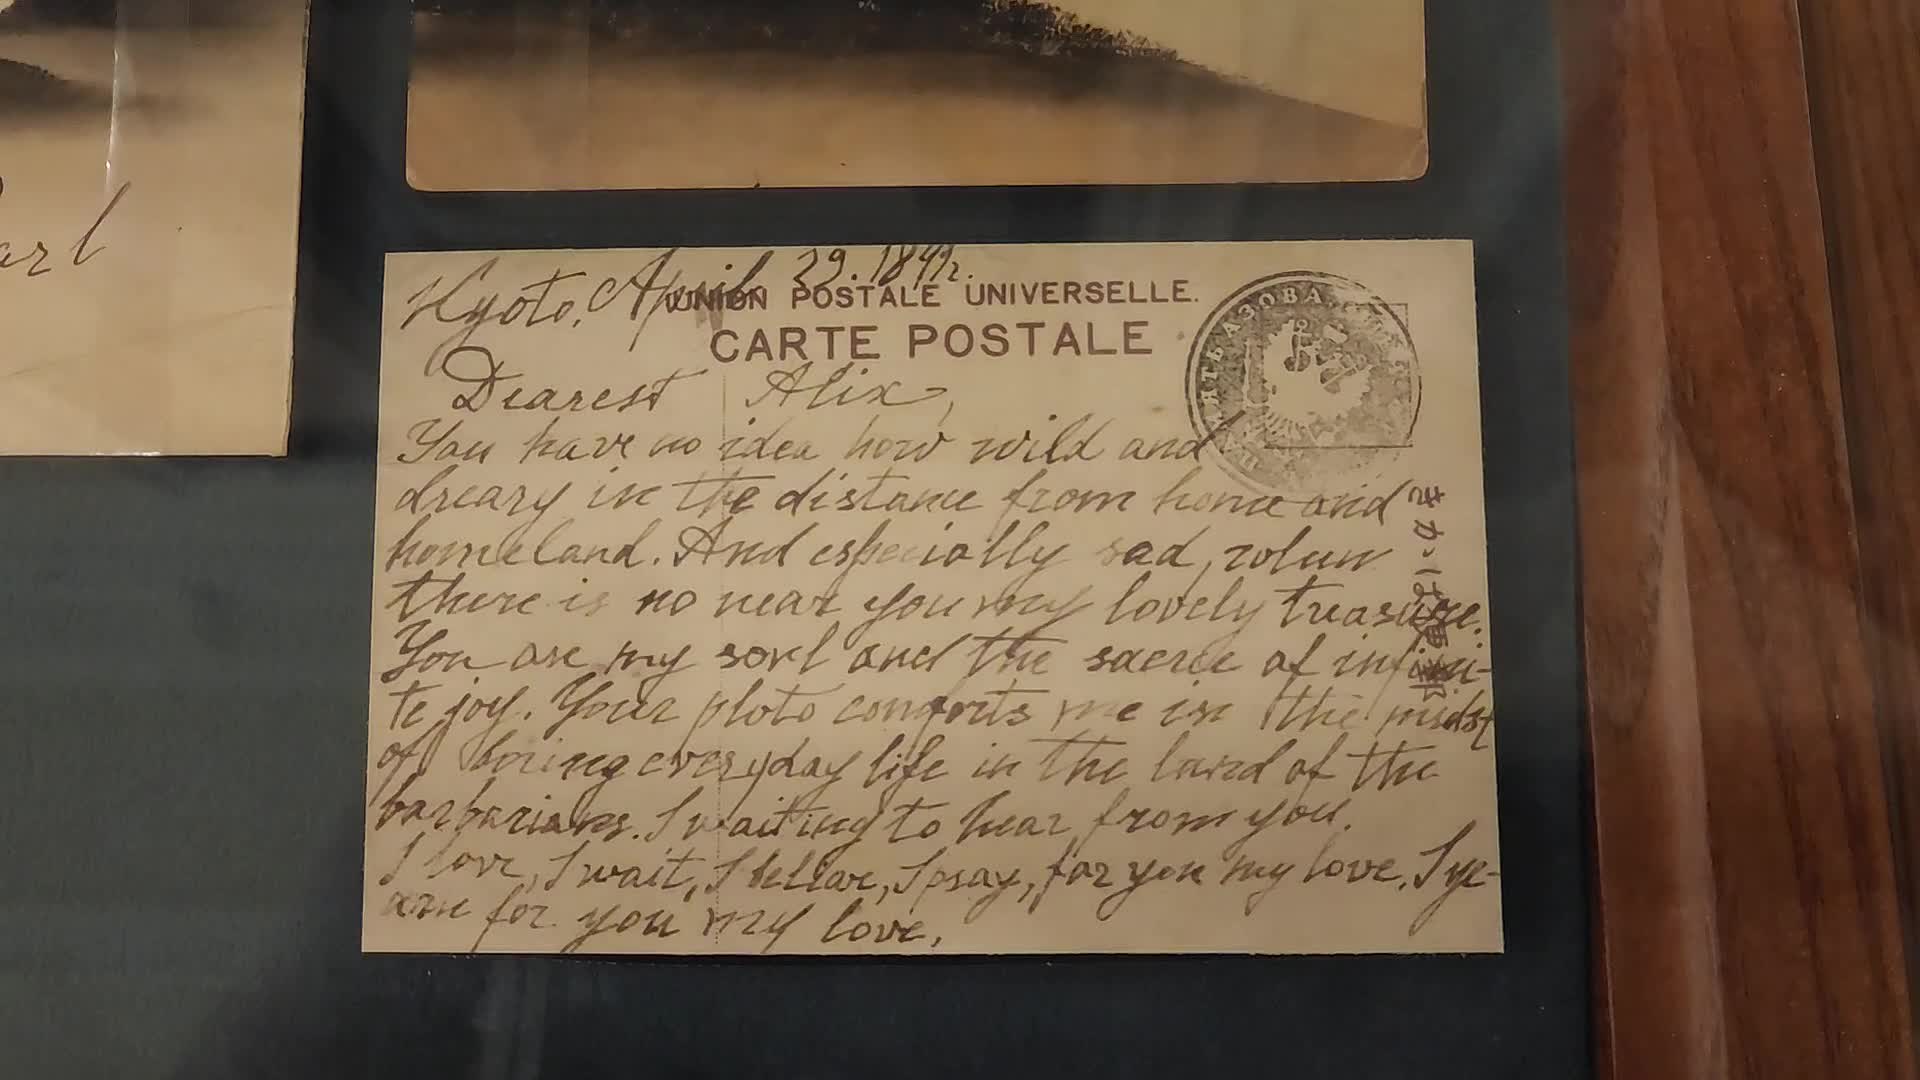 arl
Kyoto, April 29. 1891г.
UNION POSTALE UNIVERSELLE.
CARTE POSTALE
Dearest Alix,
You have no idea how wild and
dreary in the distance from home and
homeland. And especially sad, when
there is no near you my lovely treasure.
You are my soul and the sacrce of infini-
te joy. Your photo comforts me in the midst
of boring everyday life in the land of the
barbarians. I waiting to hear from you.
I love, I wait, I beliave, I pray, for you my love. I ye-
arn for you my love.
АЗОВА